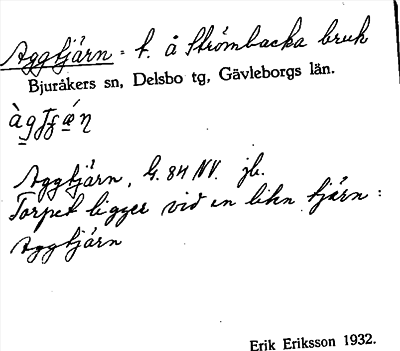 Aggtjärn = t. å Strömbacka bruk
Bjuråkers sn, Delsbo tg, Gävleborgs län.
Aggtjärn, G. 84 NV. jb.
Torpet ligger vid en liten tjärn:
Aggtjärn
Erik Eriksson 1932.